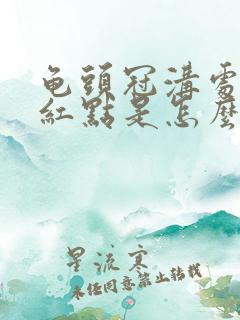 龟頭冠溝處
紅點是怎麼
星流寒
未经同意禁止转载